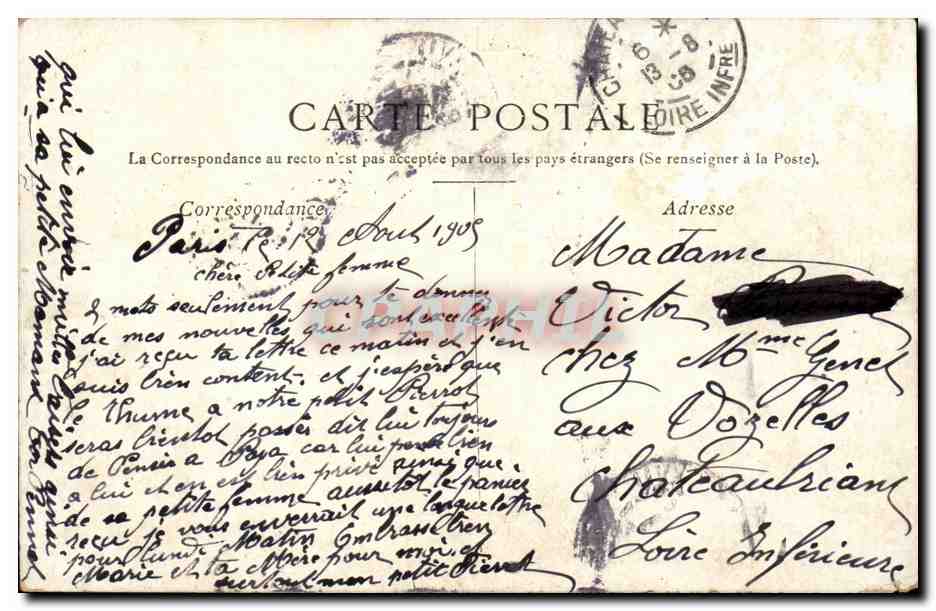 CARTE POSTALE
La Correspondance au recto n'est pas acceptée par tous les pays étrangers (Se renseigner à la Poste).
Correspondance
Paris le 12 Août 1905
chère Petite femme
2 mots seulement pour te donner
de mes nouvelles qui sont excellente
j'ai reçu ta lettre ce matin et j'en
suis bien content et j'espère que
le rhume a notre petit Pierrot
seras bientot passer dit lui toujours
de Penser a Papa car lui pense bien
a lui et en est bien privé ainsi que
de sa petite femme aussitot le panier
reçu je vous enverrait une longue lettre
pour lundi Matin Embrasse bien
Marie et ta Mère pour moi et
surtout mon petit Pierrot
qui lui envoie milles baisers ainsi
qu'a sa petite Maman ton
Adresse
Madame
Victor
chez Mme Genet
aux Vozelles
Chateaubriant
Loire Inférieure
6
13 -8
LOIRE INFRE
CPARAMA